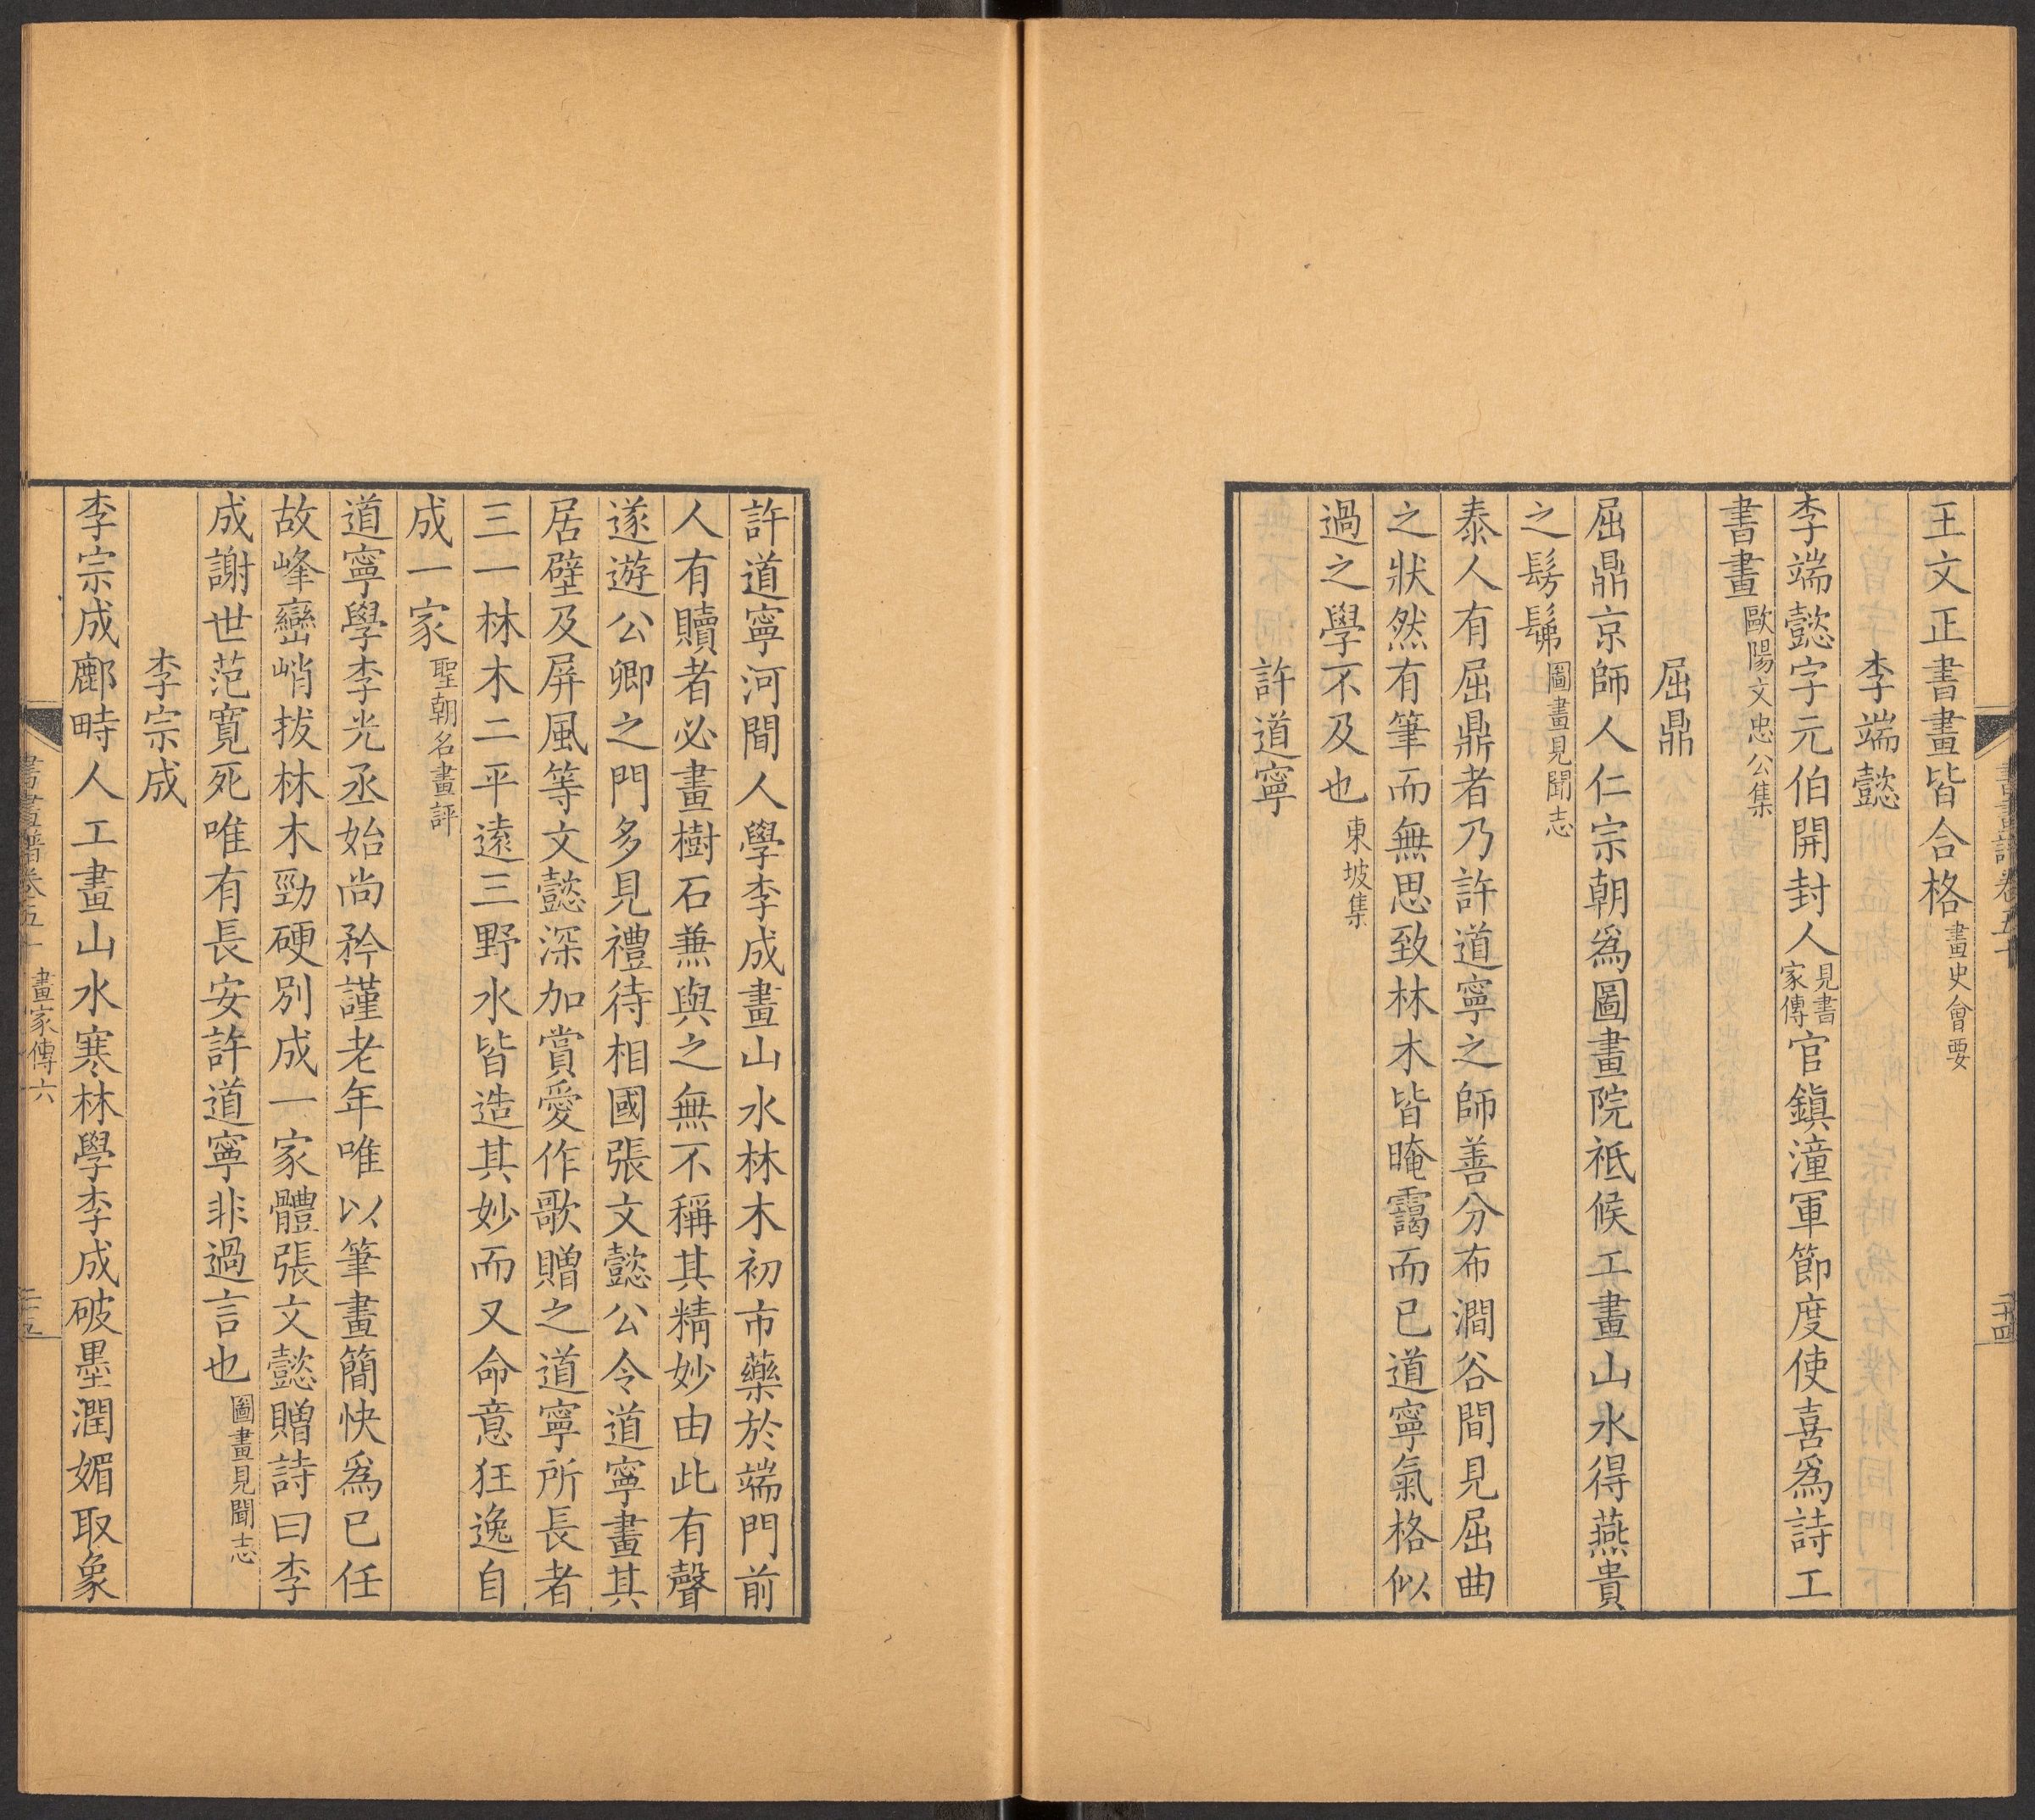 王文正書畫皆合格畫史會要
李端懿
李端懿字元伯開封人見書家傳官鎮潼軍節度使喜爲詩工
書畫歐陽文忠公集
屈鼎
屈鼎京師人仁宗朝爲圖畫院祗候工畫山水得燕貴
之髣髴圖畫見聞志
泰人有屈鼎者乃許道寧之師善分布澗谷間見屈曲
之狀然有筆而無思致林木皆晻靄而已道寧氣格似
過之學不及也東坡集
許道寧
許道寧河間人學李成畫山水林木初市藥於端門前
人有贖者必畫樹石兼與之無不稱其精妙由此有聲
遂遊公卿之門多見禮待相國張文懿公令道寧畫其
居壁及屏風等文懿深加賞愛作歌贈之道寧所長者
三一林木二平遠三野水皆造其妙而又命意狂逸自
成一家聖朝名畫評
道寧學李光丞始尚矜謹老年唯以筆畫簡快爲已任
故峰巒峭拔林木勁硬別成一家體張文懿贈詩曰李
成謝世范寬死唯有長安許道寧非過言也圖畫見聞志
李宗成
李宗成鄜畤人工畫山水寒林學李成破墨潤媚取象
書畫譜卷五十 畫家傳六